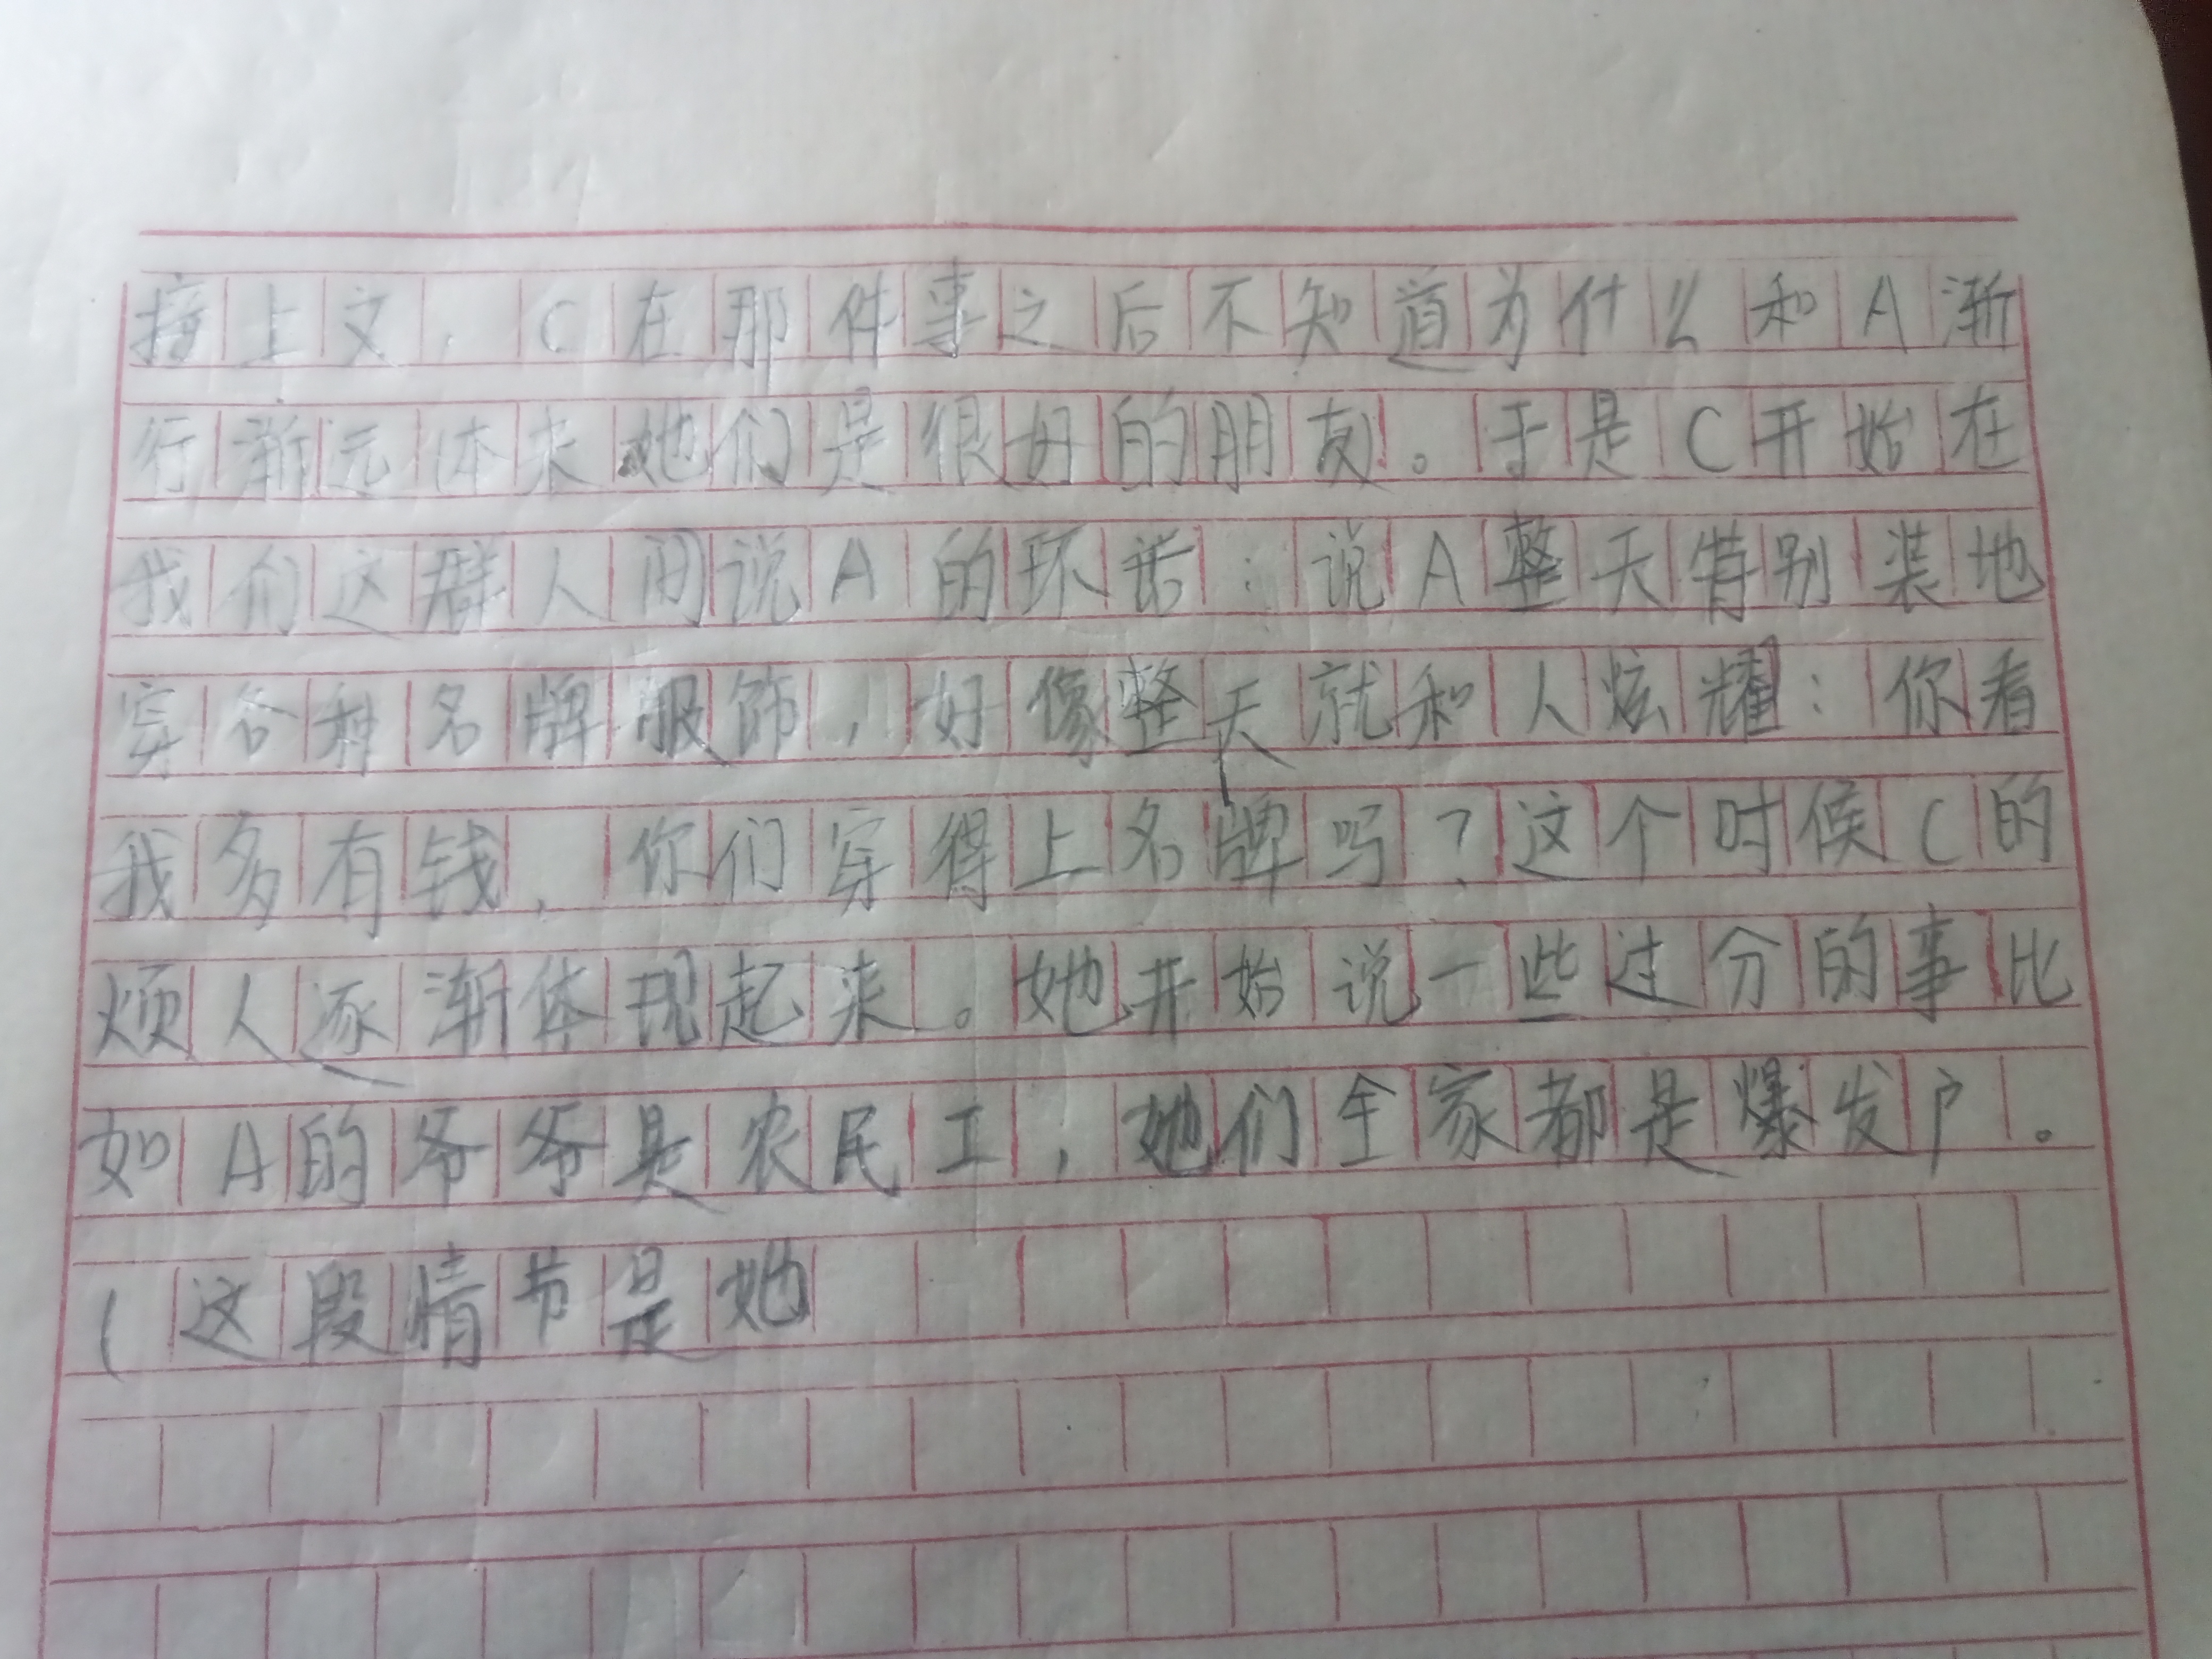 接上文，C在那件事之后不知道为什么和A渐
行渐远体来她们是很好的朋友。于是C开始在
我们这群人间说A的坏话：说A整天特别装地
穿各种名牌服饰，好像整天就和人炫耀：你看
我多有钱，你们穿得上名牌吗？这个时候C的
烦人逐渐体现起来。她开始说一些过分的事比
如A的爷爷是农民工，她们全家都是爆发户。
（这段情节是她